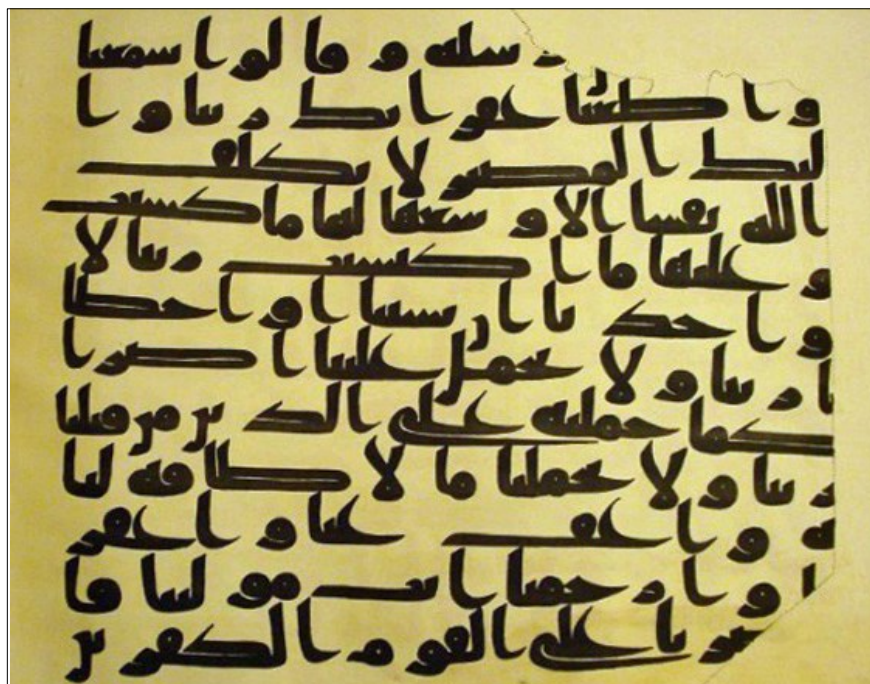 رسله و قالوا سمعنا
و اطعنا غفرانك ربنا و ا
ليك المصير لا يكلف
الله نفسا الا وسعها لها ما كسبت
و عليها ما اكتسبت ربنا لا
واخذنا ان نسينا او اخطا
نا ربنا ولا تحمل علينا اصرا
كما حملته على الذين من قبلنا
ربنا ولا تحملنا ما لا طاقه لنا
به و اعف عنا و اغفر
ا و ارحمنا انت مولينا فا
نصرنا على القوم الكفرين